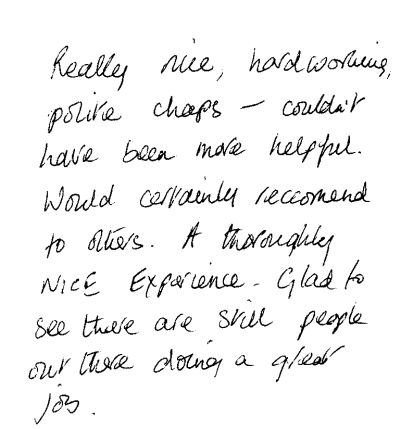 Really nice, hardworking,
polite chaps – couldn't
have been more helpful.
Would certainly reccomend
to others. A thoroughly
NICE Experience. Glad to
see there are still people
out there doing a great
job.